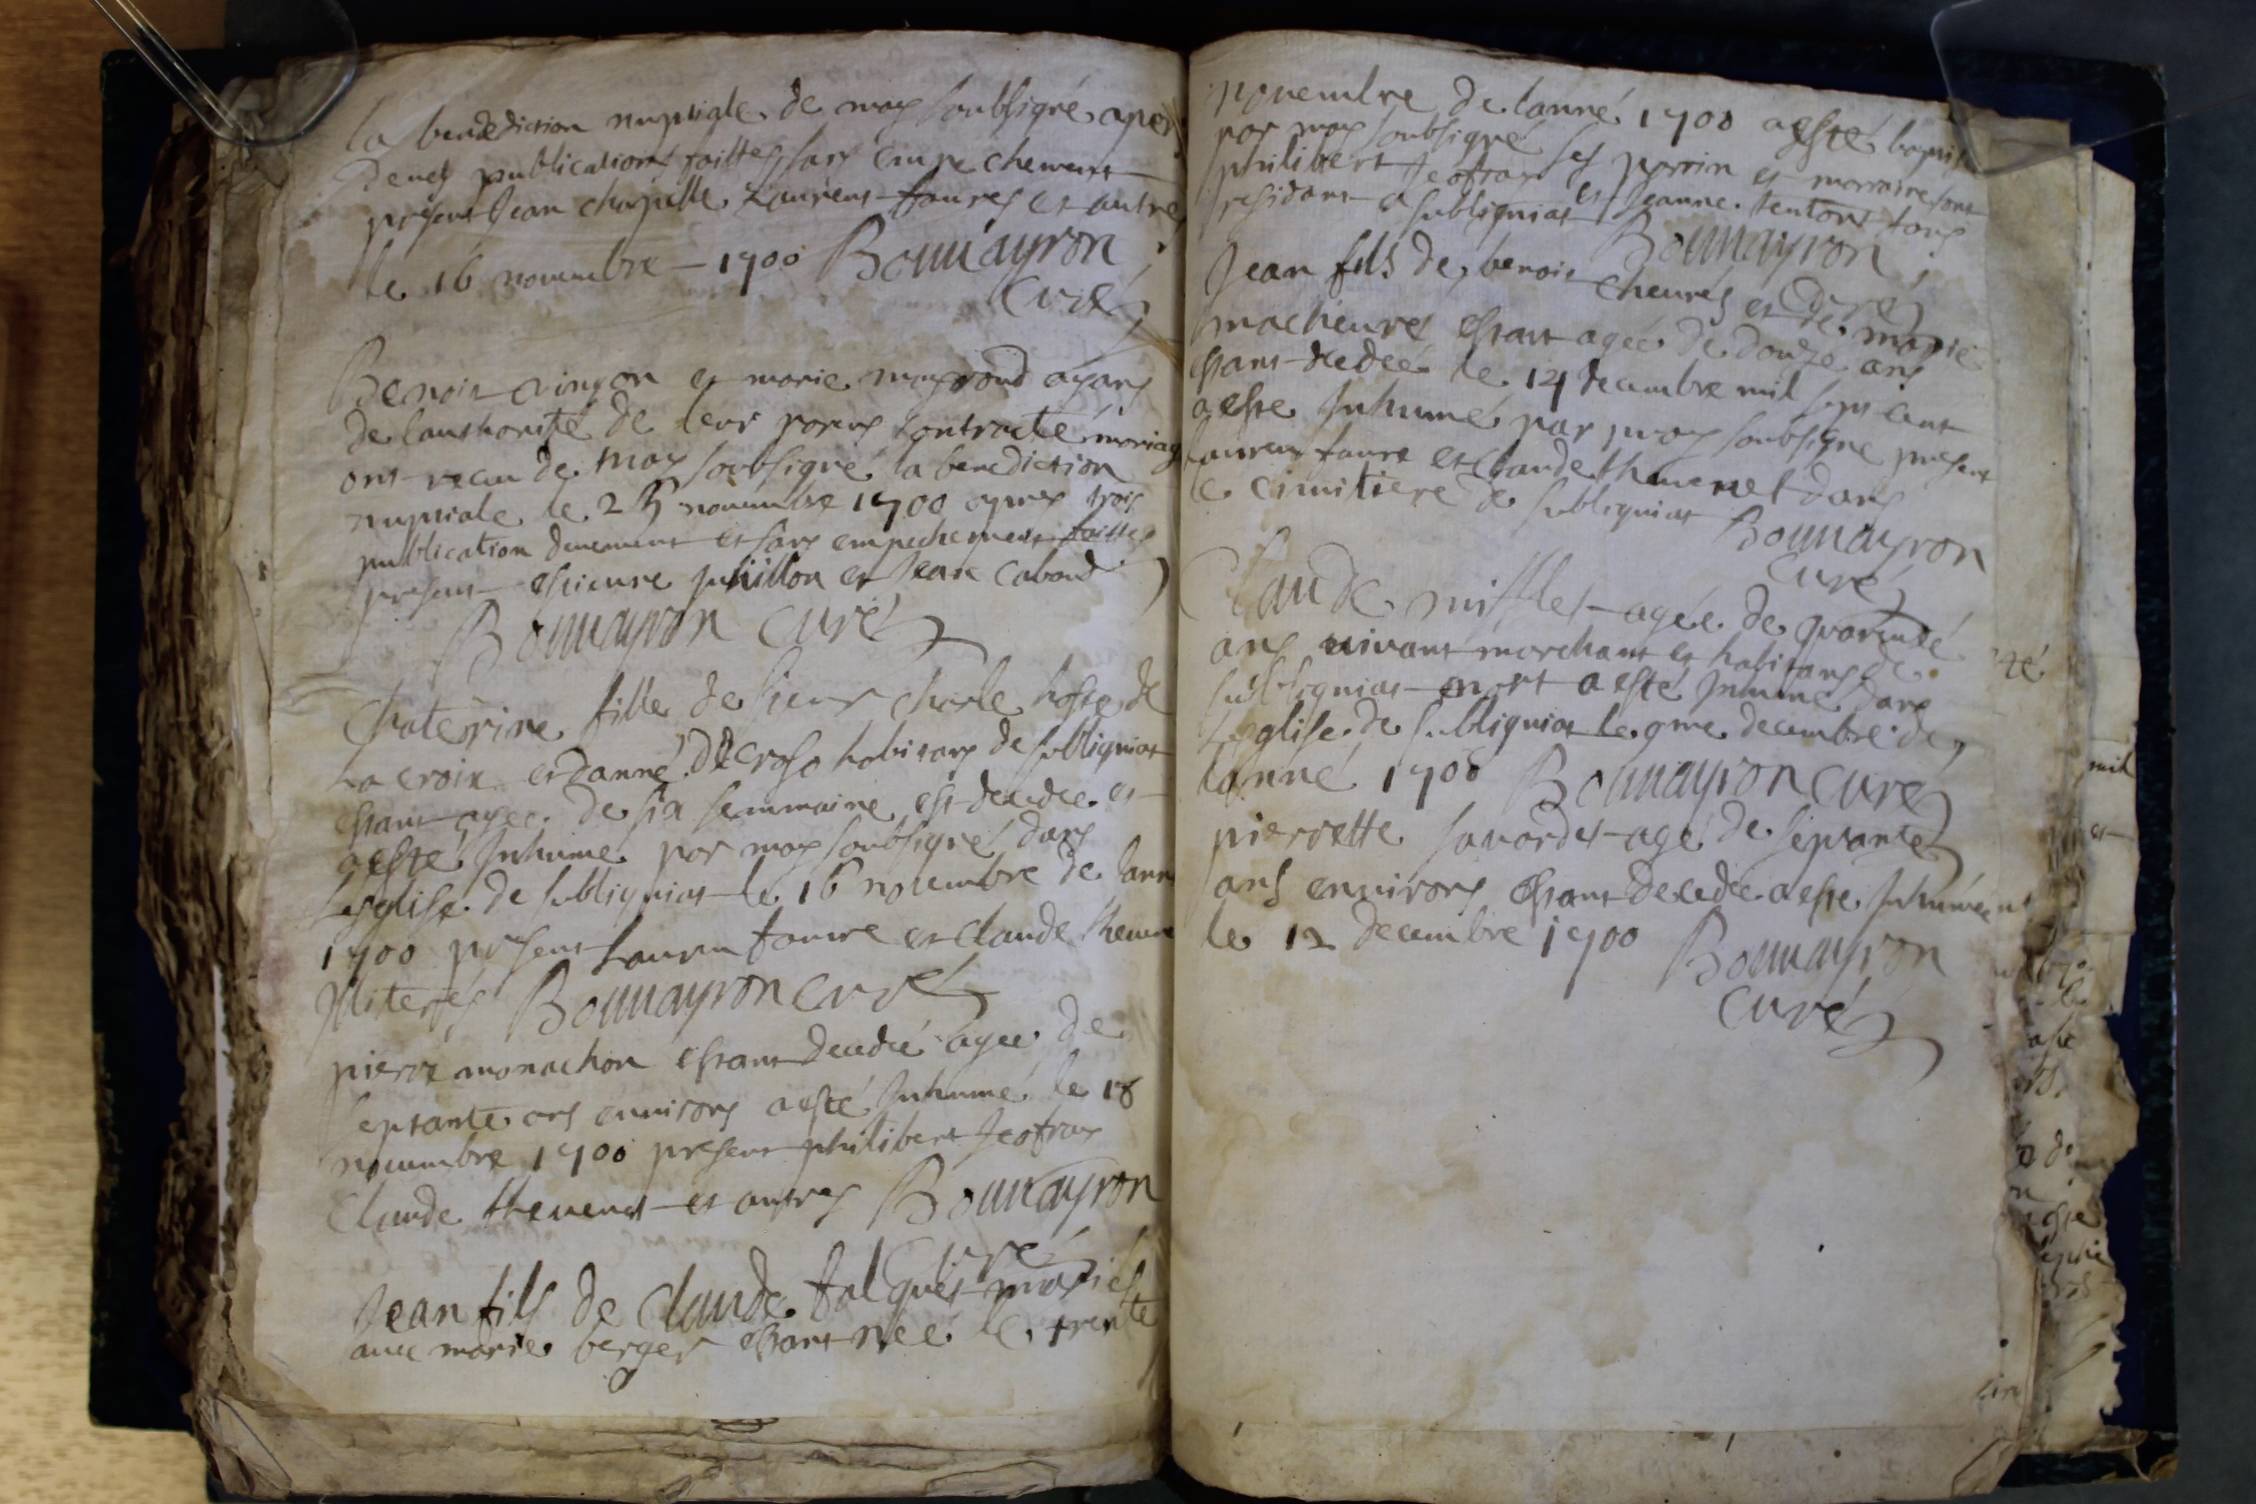 la benediction nuptiale de moy soubsigré apres
deues publications faittes sans empechement
present Jean chapelle Laurens faures et autres
le 16 novembre - 1700 Boumayron
Curé
Benoit et marie ayans
de lauthorité de leur parens contracté mariag
ont receu de moy soubsigré la benediction
nuptiale le 25 novembre 1700 apres trois
publication deuement et sans empechement faittes
present estienne et Jean
Boumayron Curé
Chaterine fille de sieur Charle hoste de
La croix et danne habitans de subligniat
estant agee de six semmaine est decedee et
a esté Inhumé par moy soubsigré dans
Leglise de subligniat le 16 novembre de lann
1700 present Lauren faure et Claude theuene
Illiterés Boumayron Curé
pierre monachon estant decedé agee de
septante ans environs a esté Inhumé le 18
nouembre 1700 present philibert Jeofray
Claude theuenet et autres Boumayron
Curé
Jean fils de Claude falques mariés
avec marie berger estant neé le trente
novembre de lanné 1700 a esté baptisé
par moy soubsigné ses parrin et marraine sont
philibert Jeofray et Jeanne tous
residant a subligniat Boumayron
Curé
Jean fils de benoit cheures et de marie
macheures estant ageé de douze ans
estant decedeé le 14 decembre mil sept cent
a este Inhumé par moy soubsigné present
Laurens faure et Claude theuenet dans
le cimitiere de subligniat Boumayron
Curé
Claude agée de quarente
ans vivant marchant et habitans de
subligniat mort a esté Inhumé dans
Leglise de subligniat le 9me decembre de
lanné 1700 Boumayron Curé
pierrette agé de septante
ans environs estant decedée a este Inhumée
le 12 decembre 1700 Boumayron
Curé